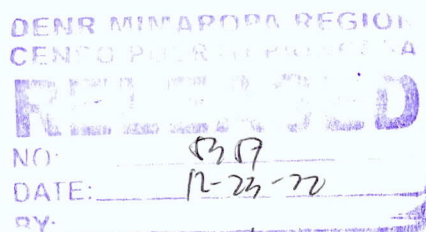 DENR MIMAROPA REGION
CENRO PUERTO PRINCESA
RELEASED
NO:
DATE: 12-23-22
BY: